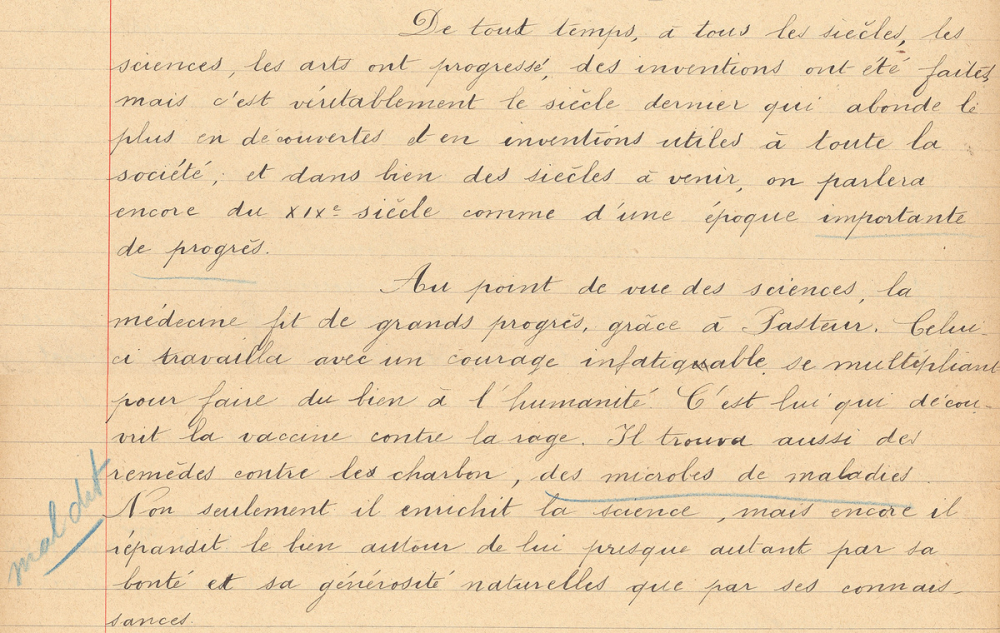 De tout temps, à tous les siècles, les
sciences, les arts ont progressé, des inventions ont été faites,
mais c'est véritablement le siècle dernier qui abonde le
plus en découvertes et en inventions utiles à toute la
société, et dans bien des siècles à venir, on parlera
encore du XIXe siècle comme d'une époque importante
de progrès.
Au point de vue des sciences, la
médecine fit de grands progrès, grâce à Pasteur. Celui-
ci travailla avec un courage infatiguable se multipliant
pour faire du bien à l'humanité. C'est lui qui décou-
vrit la vaccine contre la rage. Il trouva aussi des
remèdes contre les charbon, des microbes de maladies.
mal dit
Non seulement il enrichit la science, mais encore il
répandit le bien autour de lui presque autant par sa
bonté et sa générosité naturelles que par ses connais-
sances.